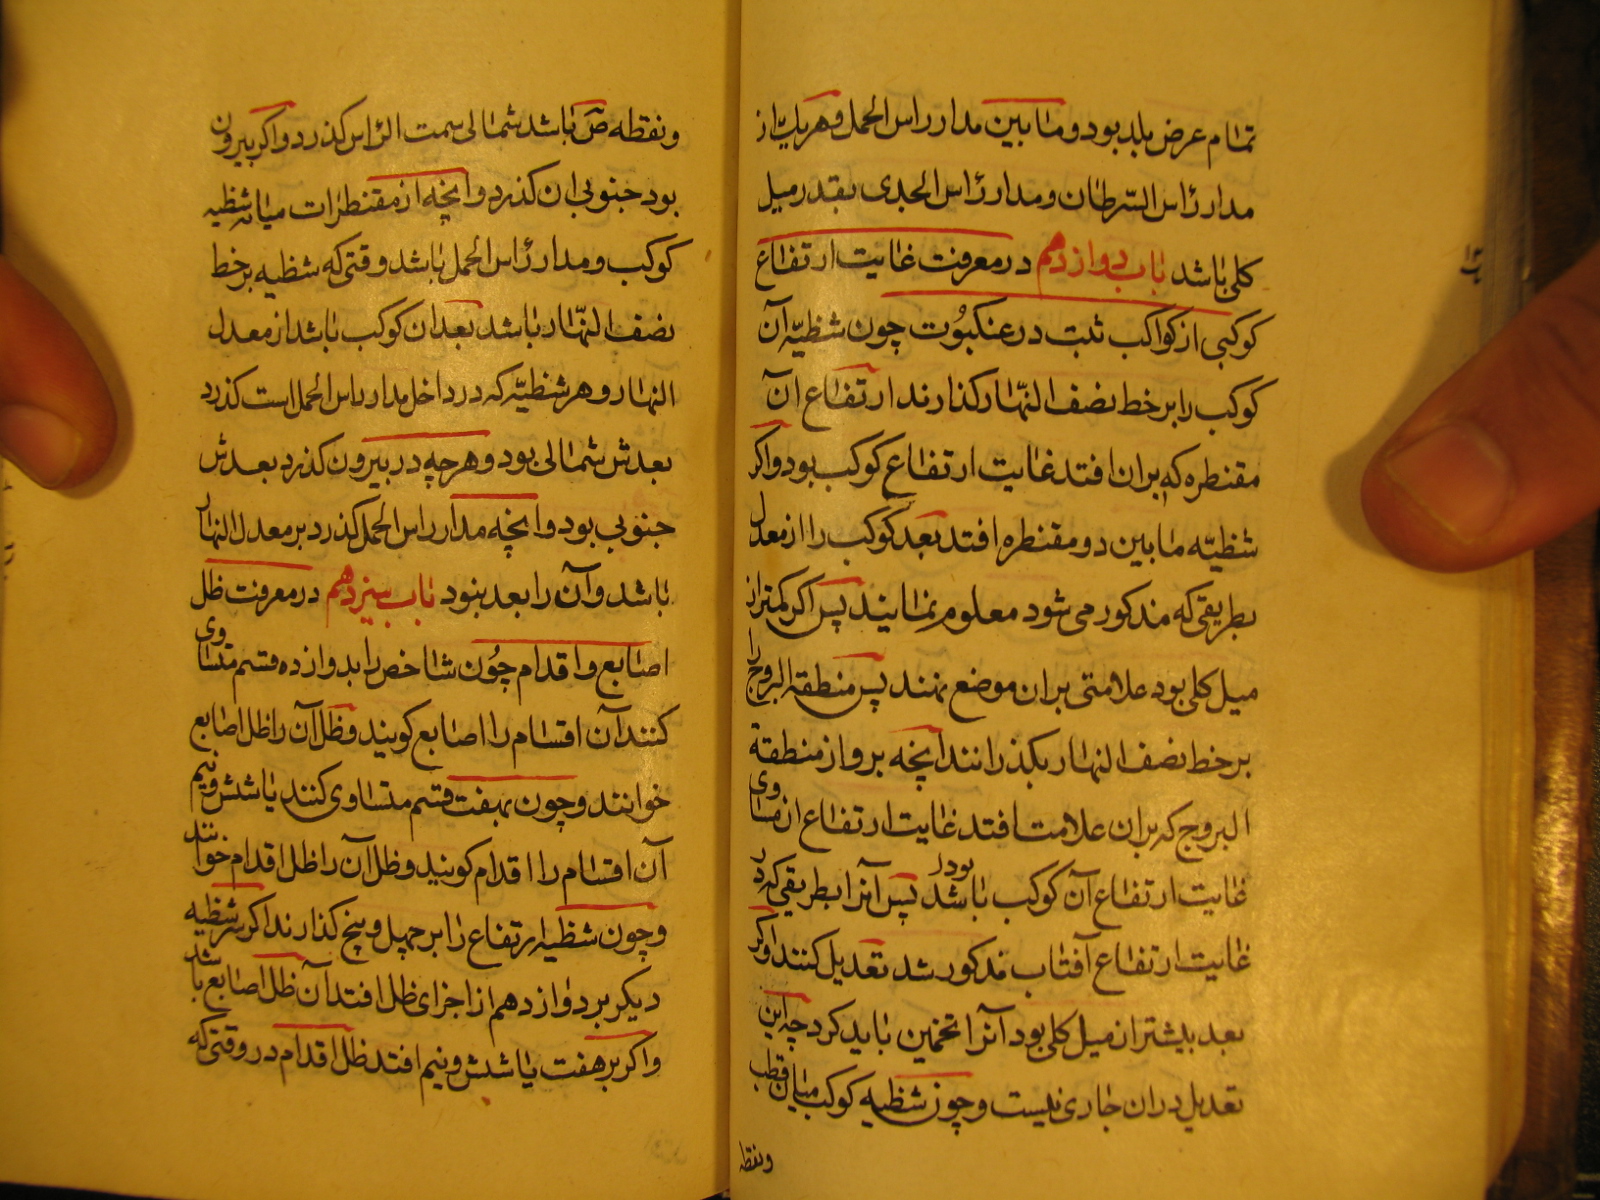 تمام عرض بلد بود و ما بین مدار راس الحمل و هر یک از
مدار راس السرطان و مدار راس الجدی بقدر میل
کلی باشد باب دوازدهم در معرفت غایت ارتفاع
کوکبی از کواکب ثبت در عنکبوت چون شظیّه آن
کوکب را بر خط نصف النهار کذارند ارتفاع آن
مقنطره که بران افتد غایت ارتفاع کوکب بود و اکر
شظیّه ما بین دو مقنطره افتد بعد کوکب را از معدل
بطریقی که مذکور می شود معلوم نمایند پس اکر کمتر از
میل کلی بود علامتی بران موضع نهند پس منطقه البروج را
بر خط نصف النهار بکذرانند انچه برو از منطقة
البروج که بران علامت افتد غایت ارتفاع ان مساوی
غایت ارتفاع آن کوکب باشد بود پس آنرا بطریقی که در
غایت ارتفاع آفتاب مذکور شد تعدیل کنند و اکر
بعد بیشتر از میل کلی بود آنرا تخمین باید کرد چه این
تعدیل دران جاری نیست و چون شظیه کوکب میان قطب
ونقطه
ونقطه ص باشد شمالی سمت الراس کذرد و اکر بیرون
بود جنوبی ان کذرد و انچه از مقنطرات میانه شظیه
کوکب و مدار راس الحمل باشد وقتی که شظیه بر خط
نصف النهار باشد بعد ان کوکب باشد از معدل
النهار و هر شظیّه که در داخل مدار راس الحمل است کذرد
بعدش شمالی بود و هر چه در بیرون کذرد بعدش
جنوبی بود و انچه مدار راس الحمل کذرد بر معدل النهار
باشد و آن را بعد نبود باب سیزدهم در معرفت ظل
اصابع و اقدام چون شاخص را بدوازده قسم متساوی
کنند آن اقسام را اصابع کویند و ظل آن را ظل اصابع
خوانند و چون بهفت قسم متساوی کنند یا شش و نیم
آن اقسام را اقدام کویند و ظل آن را ظل اقدام خوانند
و چون شظیه ارتفاع را بر چهل و پنج کذارند اکر شظیه
دیکر بر دوازدهم از اجزای ظل افتد آن ظل اصابع باشد
و اکر بر هفت یا شش و نیم افتد ظل اقدام در وقتی که